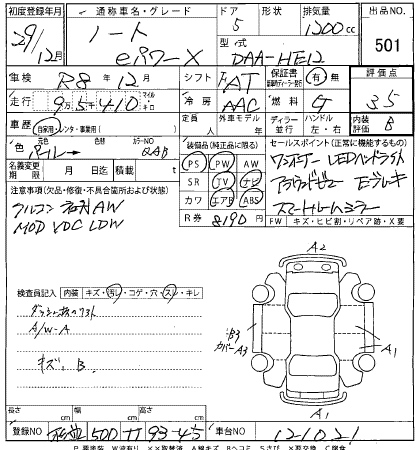 初度登録年月 通称車名・グレード ドア 形状 排気量 出品NO
29/12月 ノート eパワーX 5 1200cc 501
型式 DAA-HE12
車検 R8年12月 シフト FAT 保証書 有・無 評価点
走行 9万5千410 km マイル 冷房 AAC 燃料 G 3.5
車歴 自家用・レンタ・事業用( ) 定員 人 外車モデル 年 ディーラー 並行 ハンドル 左・右 内装 B
色 元色 パール→ カラーNO QAB
装備品(純正品に限る) セールスポイント(正常に機能するもの)
名義変更期限 月 日 積載 t
PS PW AW ワンオーナー LEDヘッドライト
注意事項(欠品・修復・不具合箇所および状態)
SR TV ナビ アラウンドビュー Eブレーキ
アルコン ネオAW カワ エアB ABS スマートルームミラー
MOD VDC LDW R券 8190円 FW キズ・ヒビ割・リペア跡・X要
A2
検査員記入 内装 キズ・汚レ・コゲ・穴・スレ・キレ
A/W-A カバーA3 A1
キズ、B.
A1
長さ cm 幅 cm 高さ cm
登録NO 500 93-45 車台NO 121021